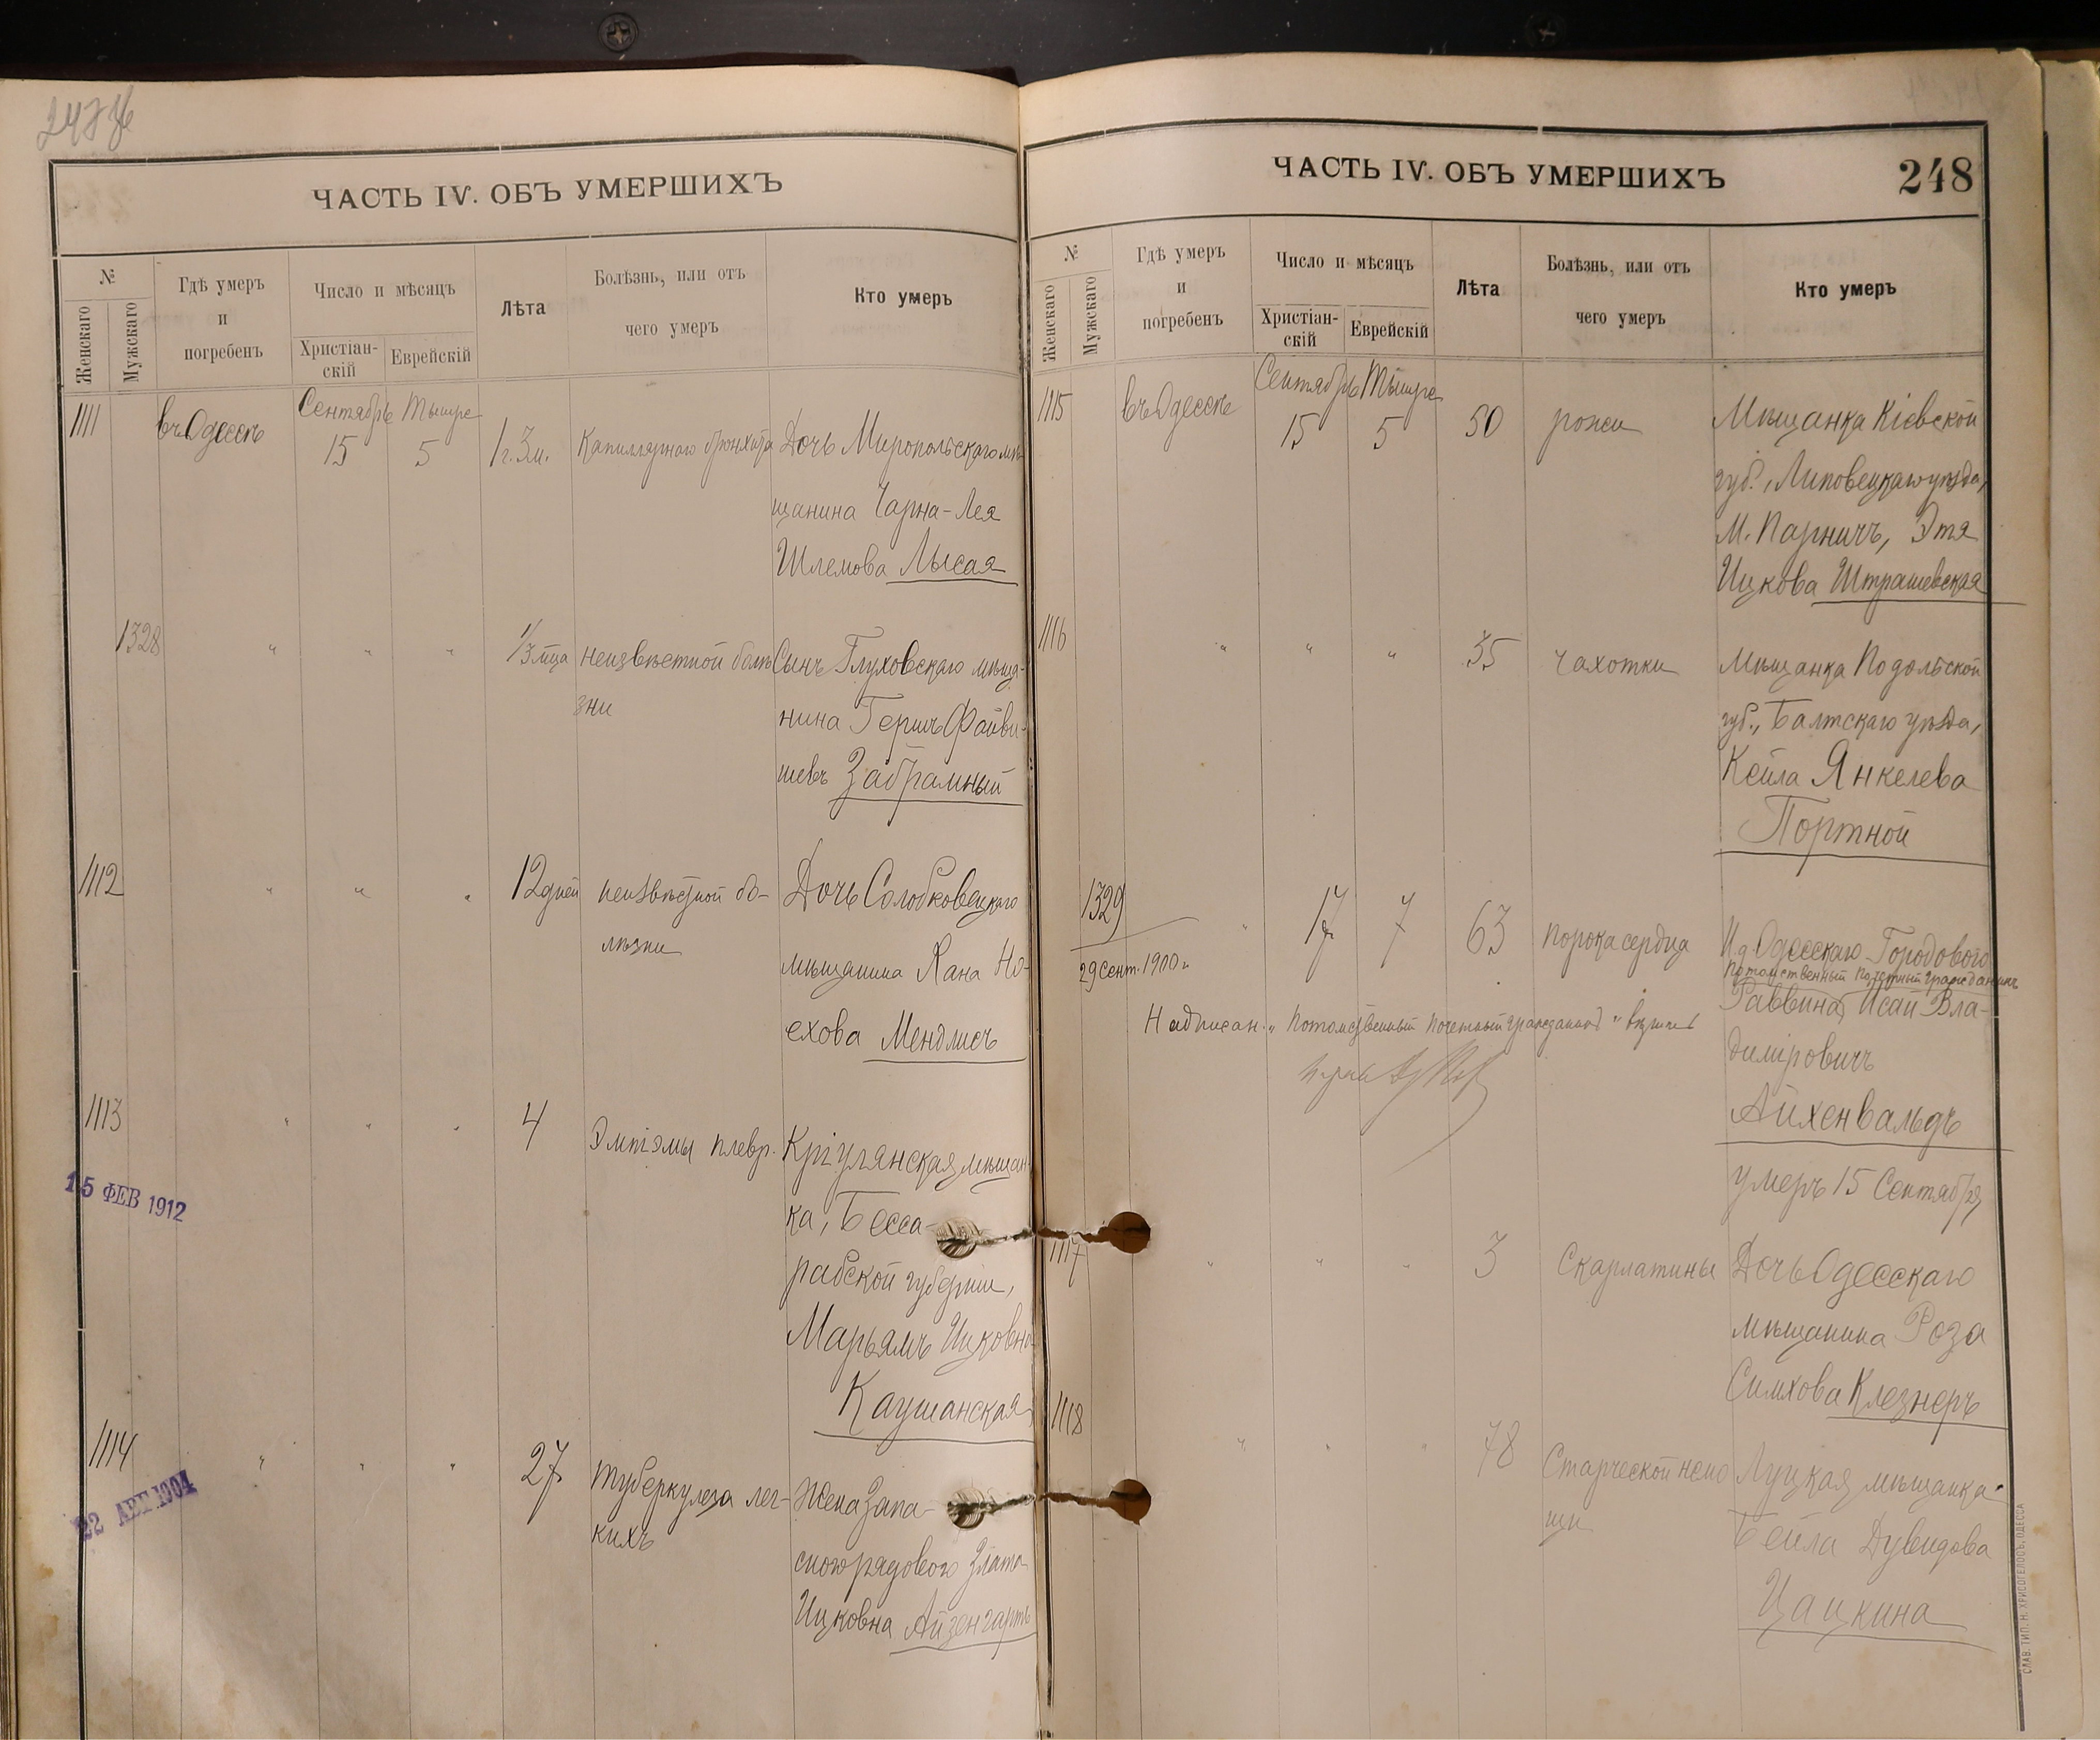 ЧАСТЬ IV. ОБЪ УМЕРШИХЪ
№
Женскаго
Мужскаго
Гдѣ умеръ
и
погребенъ
Число и мѣсяцъ
Христіан-
скій
Еврейскій
Лѣта
Болѣзнь, или отъ
чего умеръ
Кто умеръ
1111
въ Одессѣ
Сентябрь Тышре
15 5
1 г. 3 м.
Капиллярнаго бронхита
Дочь Миропольскаго мѣ-
щанина Чарна-Лея
Шлемова Лысая
1328
" " "
1/3 м-ца
неизвѣстной болѣ-
зни
Сынъ Глуховскаго мѣща-
нина Гершъ Файви-
шевъ Забрамный
1112
" " "
12 дней
неизвѣстной бо-
лѣзни
Дочь Солобковецкаго
мѣщанина Хана Но-
ехова Мендлисъ
1113
" " "
4
Эмпіэмы плевр.
Кріулянская мѣщан-
ка, Бесса-
рабской губерніи,
Марьямъ Ицковна
Каушанская
15 ФЕВ 1912
1114
" " "
27
туберкулеза лег-
кихъ
Жена запа-
сного рядового Злата
Ицковна Айзенгартъ
22 АВГ 1904
ЧАСТЬ IV. ОБЪ УМЕРШИХЪ
248
№
Женскаго
Мужскаго
Гдѣ умеръ
и
погребенъ
Число и мѣсяцъ
Христіан-
скій
Еврейскій
Лѣта
Болѣзнь, или отъ
чего умеръ
Кто умеръ
1115
въ Одессѣ
Сентябрь Тышре
15 5
50
рожи
Мѣщанка Кіевской
губ., Липовецкаго уѣзда,
М. Парничъ, Этя
Ицкова Штрашевская
1116
" " "
35
чахотки
Мѣщанка Подольской
губ., Балтскаго уѣзда,
Кейла Янкелева
Портной
1329
"
17 7
63
порока сердца
И. д. Одесскаго Городового
потомственный почетный гражданинъ
Раввина, Исай Вла-
диміровичъ
Айхенвальдъ
умеръ 15 Сентября
29 Сент. 1900 г.
Надписан. "потомственный почетный гражданинъ"
1117
" " "
3
Скарлатины
Дочь Одесскаго
мѣщанина Роза
Симхова Клезнеръ
1118
" " "
78
Старческой немо
щи
Луцкая мѣщанка
Бейла Дувидова
Цацкина
СЛАВ. ТИП. Н. ХРИСОГЕЛОСЪ, ОДЕССА